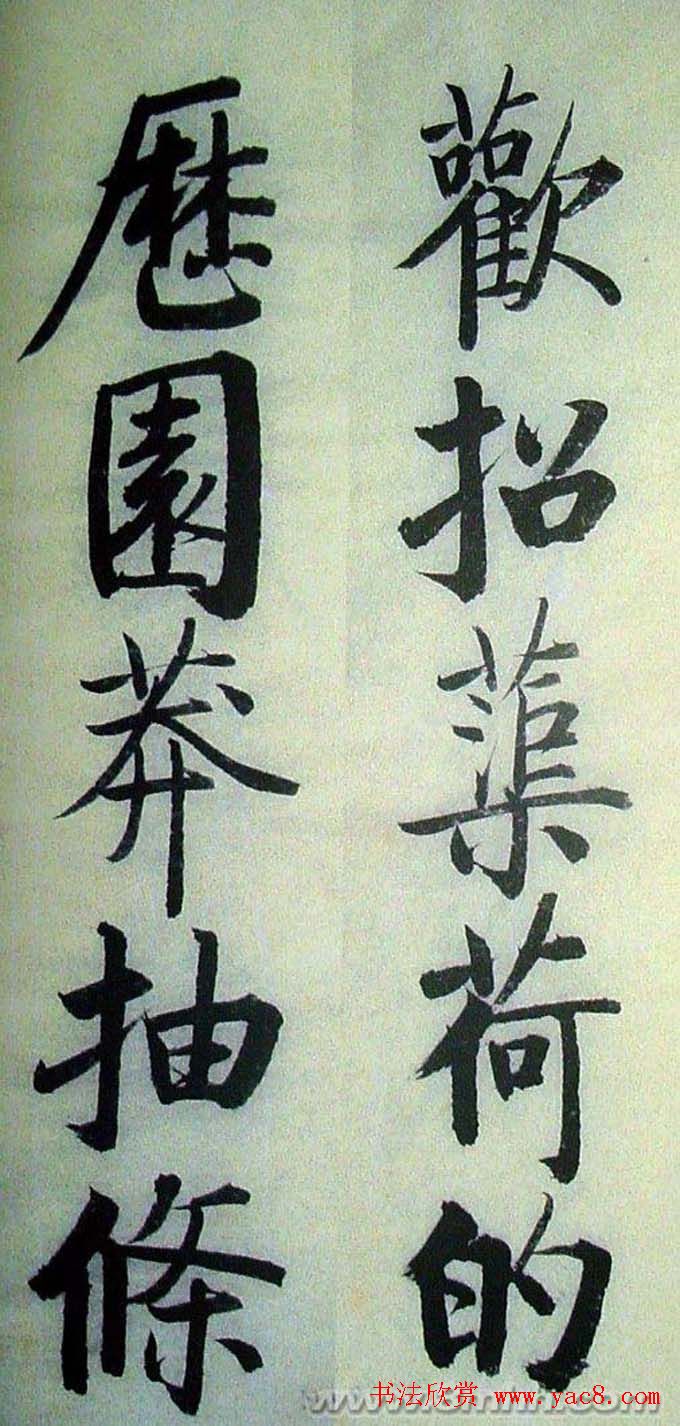 歡招蕖荷的
歷園莽抽條
书法欣赏 www.yac8.com